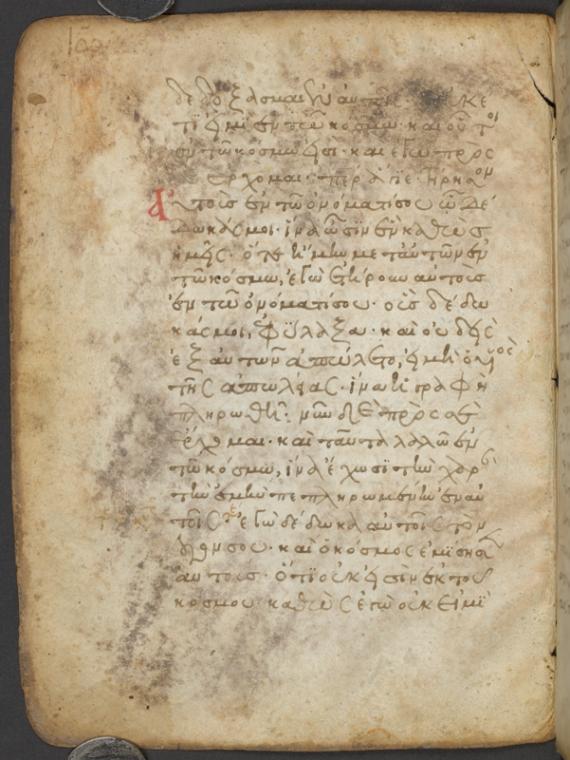 δεδόξασμαι ἐν αὐτοῖς· κε
τι εἰμὶ ἐν τῶ κόσμω· καὶ οὗτοι
ἐν τῶ κόσμω εἰσὶ· καὶ ἐγὼ πρὸς
ἔρχομαι· περ ἅγιε· τήρησον
αὐτοὺς ἐν τῶ ὀνόματί σου ὧ δέ
δωκάς μοι· ἵνα ὦσιν ἓν καθὼς
ἡμεῖς· ὅτε ἤμην μετ αὐτῶν ἐν
τῶ κόσμω, ἐγὼ ἐτήρουν αὐτοὺς
ἐν τῶ ὀνόματί σου· οὓς δέδω
κάς μοι, ἐφύλαξα· καὶ οὐδεὶς
ἐξ αὐτῶν ἀπώλετο, εἰ μὴ ὁ υἱὸς
τῆς ἀπωλείας· ἵνα ἡ γραφὴ
πληρωθῆ· νῦν δὲ πρὸς σὲ
ἔρχομαι· καὶ ταῦτα λαλῶ ἐν
τῶ κόσμω, ἵνα ἔχωσι τὴν χαρὰν
τὴν ἐμὴν πεπληρωμένην ἐν αὐ
τοῖς· ἐγὼ δέδωκα αὐτοῖς τὸν
λόγον σου· καὶ ὁ κόσμος ἐμίσησεν
αὐτοὺς· ὅτι οὐκ εἰσὶν ἐκ τοῦ
κόσμου καθὼς ἐγὼ οὐκ εἰμὶ